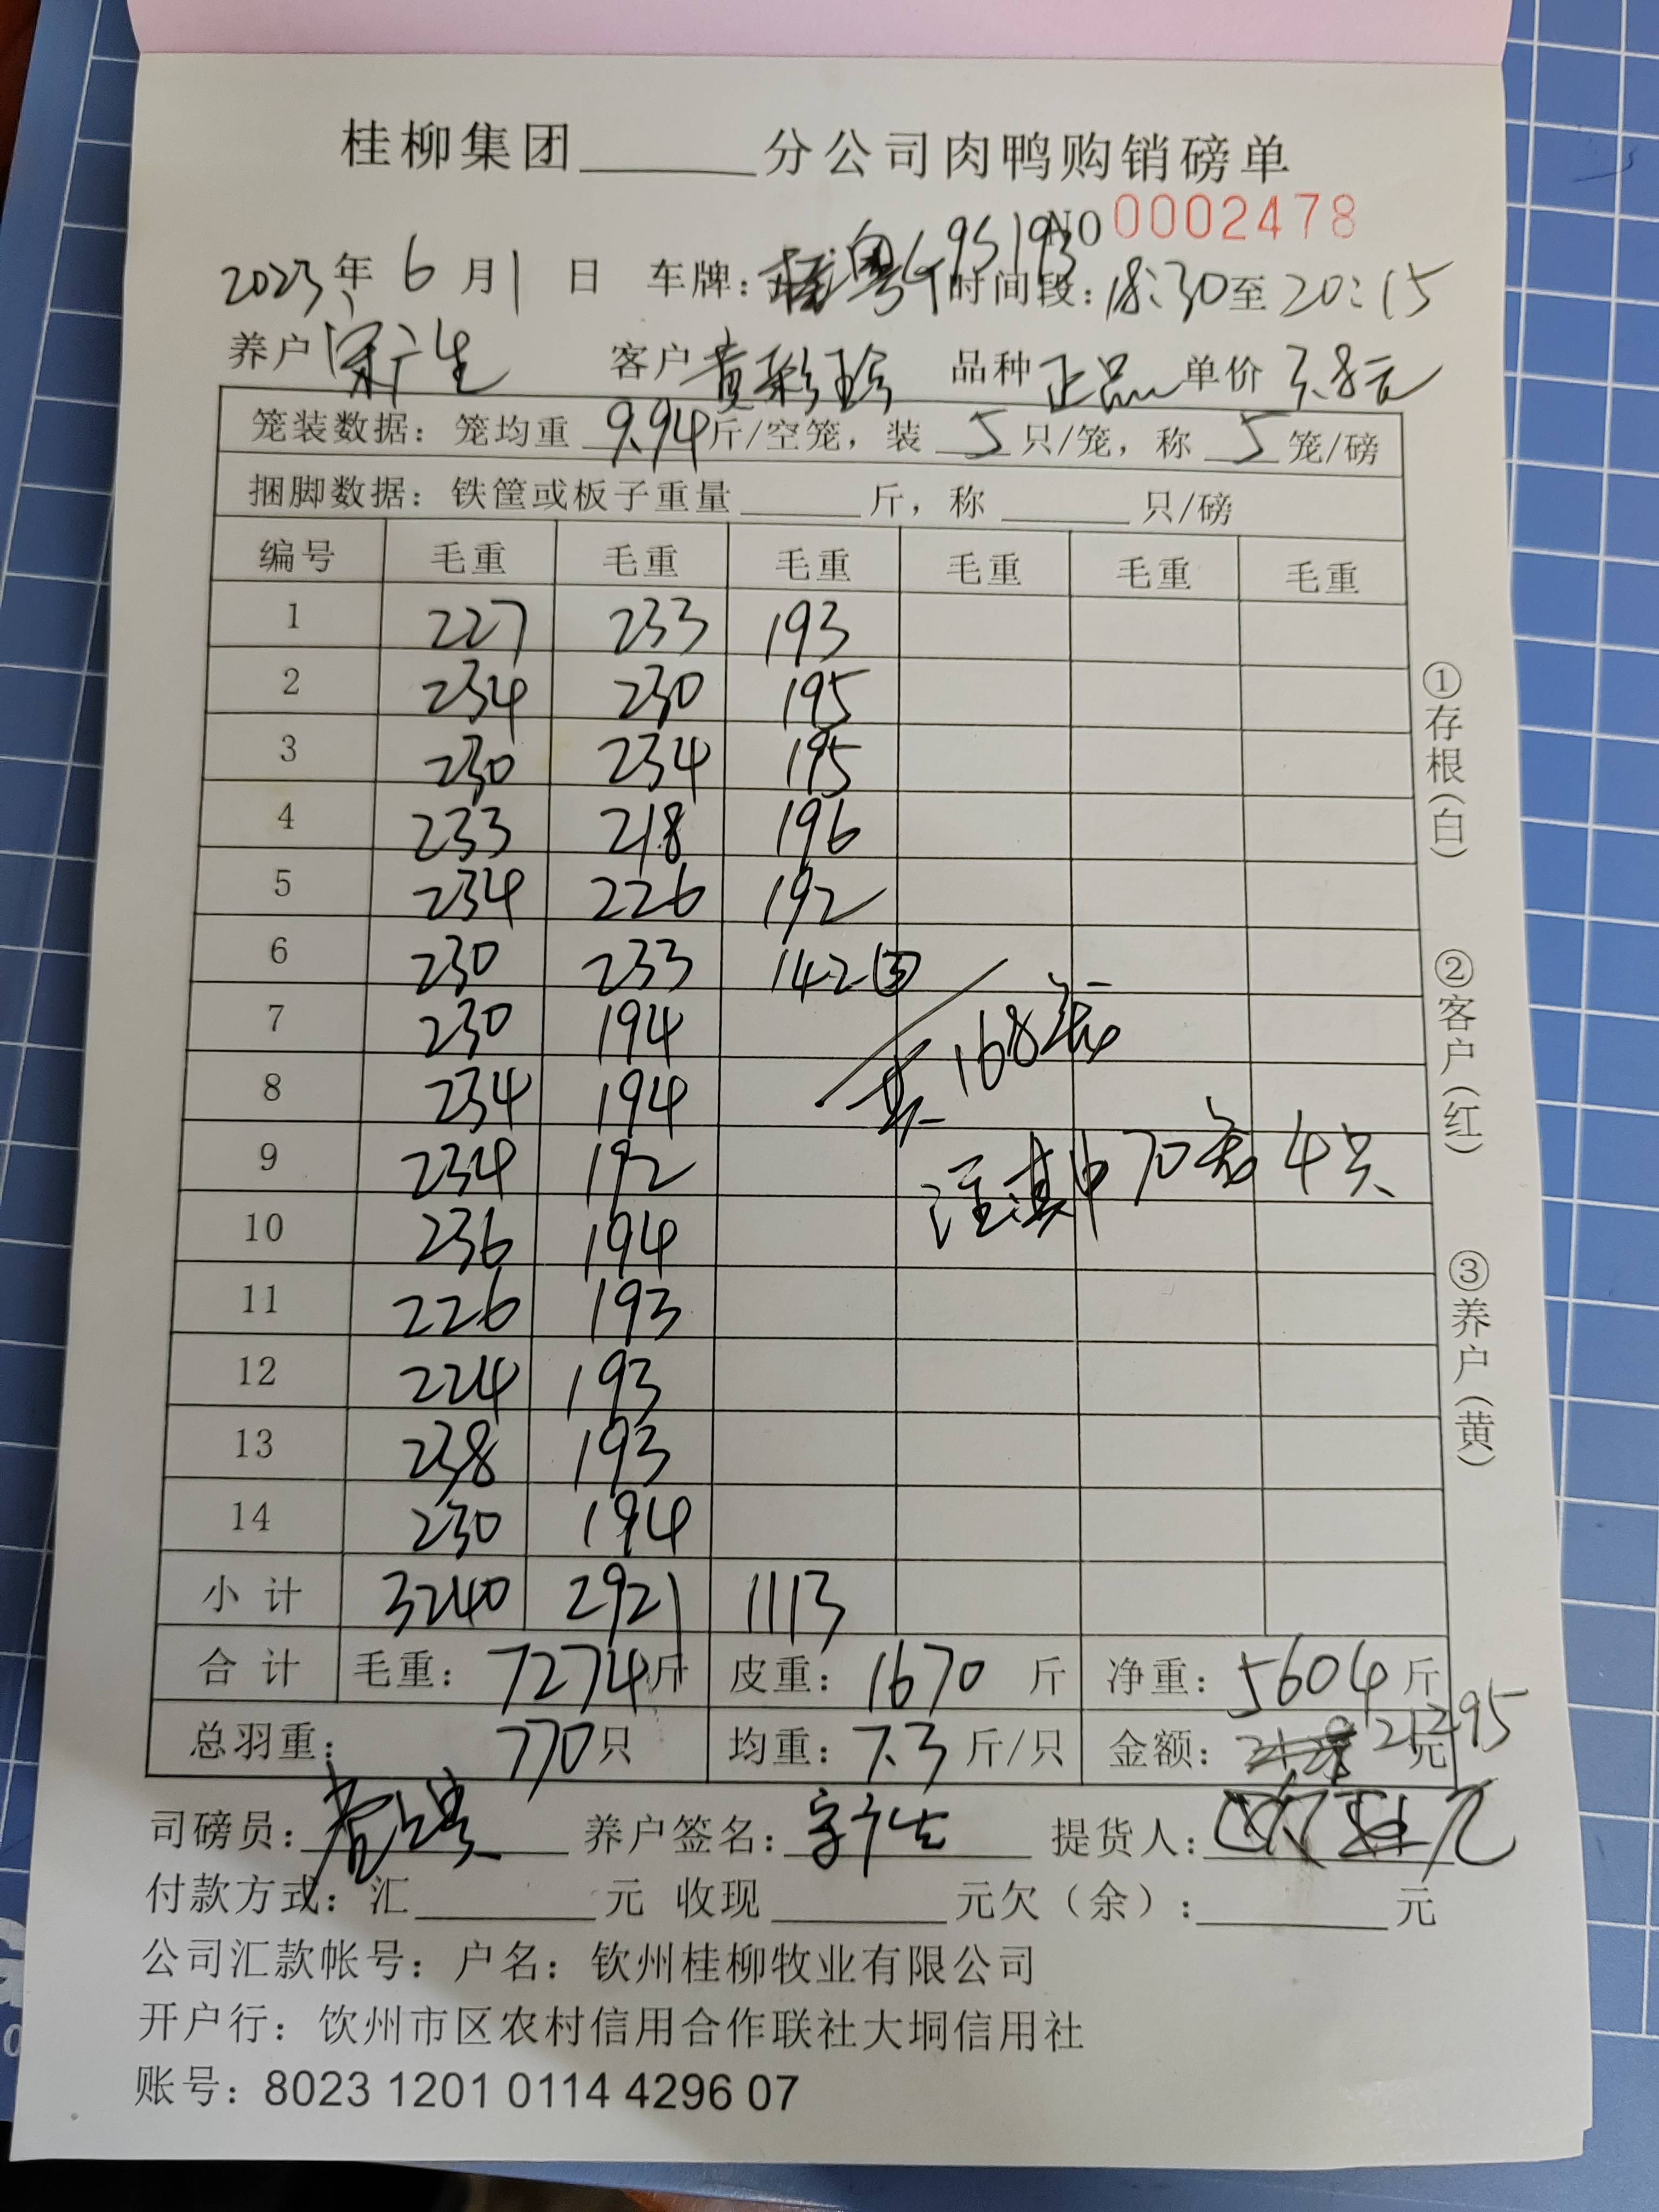 桂柳集团______分公司肉鸭购销磅单
NO 0002478
2023年6月1日 车牌:粤G95193 时间段:18:30至20:15
养户 宋广生 客户 黄彩珍 品种 正品 单价 3.8元
笼装数据:笼均重 9.94 斤/空笼,装 5 只/笼,称 5 笼/磅
捆脚数据:铁筐或板子重量______斤,称______只/磅
编号 毛重 毛重 毛重 毛重 毛重 毛重
1 227 233 193
2 234 230 195
3 230 234 195
4 233 218 196
5 234 226 192
6 230 233 142③
7 230 194
8 234 194
共168笼
9 234 192
注其中70笼4只
10 236 194
11 226 193
12 224 193
13 238 193
14 230 194
小计 3240 2921 1113
合计 毛重:7274斤 皮重:1670斤 净重:5604斤
总羽重:770只 均重:7.3斤/只 金额:21295元
司磅员: 养户签名:宋广生 提货人:
付款方式:汇______元 收现______元欠(余):______元
公司汇款帐号:户名:钦州桂柳牧业有限公司
开户行:饮州市区农村信用合作联社大垌信用社
账号:8023 1201 0114 4296 07
①存根(白)
②客户(红)
③养户(黄)